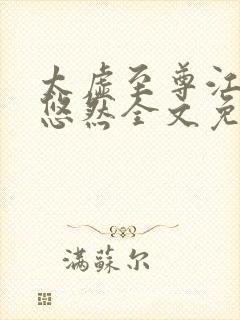 太虚至尊江
悠然全文免
满蘇尔